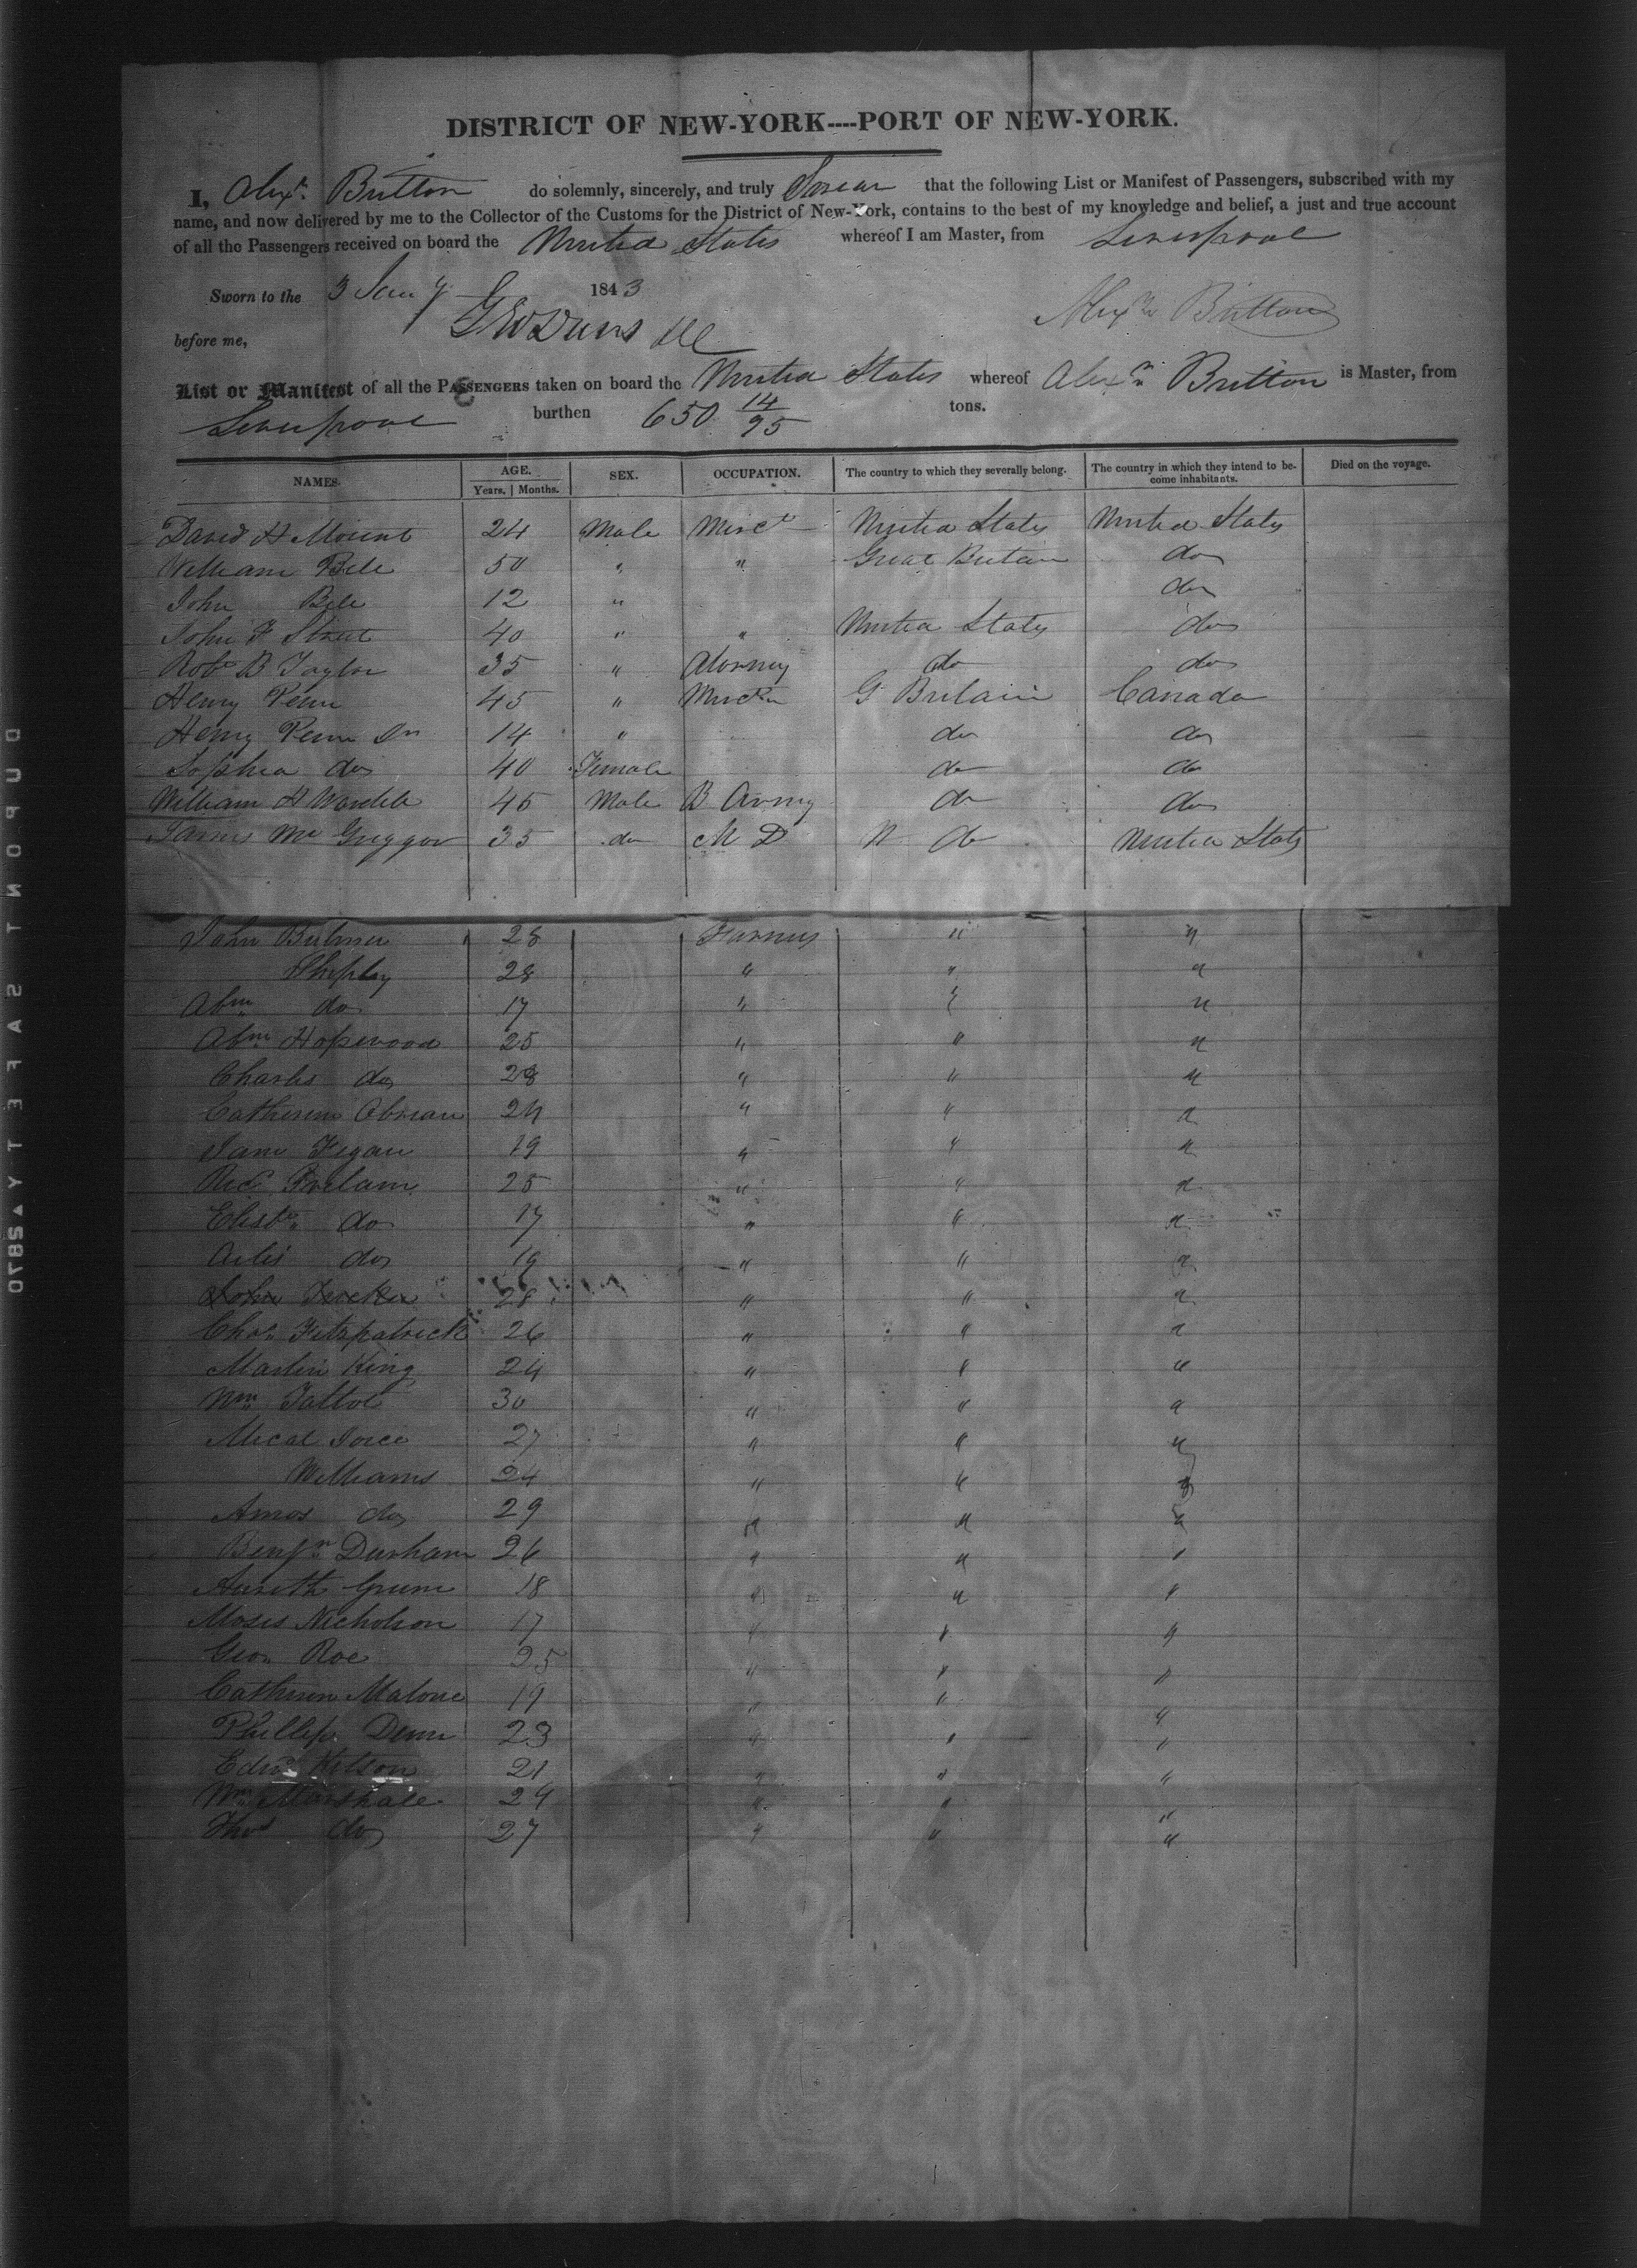 DISTRICT OF NEW-YORK----PORT OF NEW-YORK.
I, Alexr. Britton do solemnly, sincerely, and truly Swear that the following List or Manifest of Passengers, subscribed with my
name, and now delivered by me to the Collector of the Customs for the District of New-York, contains to the best of my knowledge and belief, a just and true account
of all the Passengers received on board the United States whereof I am Master, from Liverpool
Sworn to the 3 Jany 1843
Alexr Britton
before me,
List or Manifest of all the PASSENGERS taken on board the United States whereof Alexr. Britton is Master, from
Liverpool burthen 650 14/95 tons.
NAMES. AGE. SEX. OCCUPATION. The country to which they severally belong. The country in which they intend to be- Died on the voyage.
Years. | Months. come inhabitants.
David H Mount 24 Male Merct United States United States
William Bell 50 " " Great Britain do
John Bell 12 " do
John F Street 40 " " United States do
Robt B Taylor 35 " Atorney do do
Henry Penn 45 " G Britain Canada
Henry Penn Jn 14 " do do
Sophia do 40 Female do do
William H Wardell 45 Male B Army do do
James McGreggor 35 do M D do United States
John Bulmer 28 Farmers " "
Shepley 28 " " "
Abm do 17 " " "
Abm Hopwood 25 " " "
Charles do 28 " " "
Catherine Obrian 24 " " "
Jane Fegan 19 " " "
25 " " "
Elisth do 17 " " "
do 19 " " "
John Tucker 28 " " "
Chas. Fitzpatrick 26 " " "
Martin King 24 " " "
Wm 30 " " "
Mical Joice 27 " " "
Williams 24 " " "
Amos do 29 " " "
Benjn Durham 26 " " "
18 " " "
Moses Nicholson 17 " " "
Geo. Roe 25 " " "
Catherine Malone 19 " " "
Phillip Dunn 23 " " "
Edwd Kitson 21 " " "
Wm Marshall 24 " " "
Thos do 27 " " "